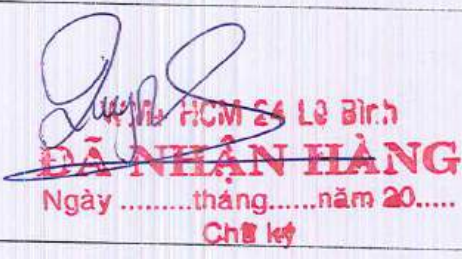 HCM 24 Lê Bình
ĐÃ NHẬN HÀNG
Ngày .........tháng......năm 20.....
Chữ ký